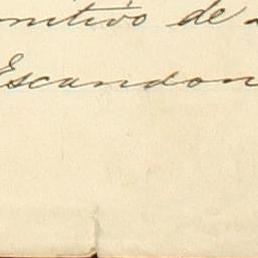 nitivo de
Escandon